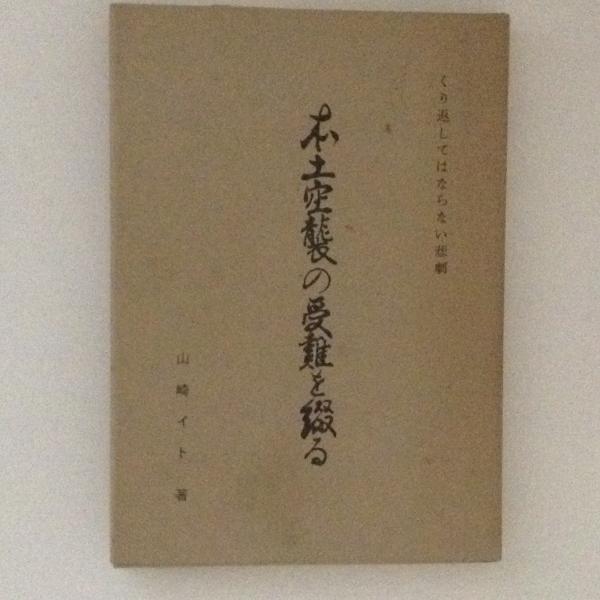 くり返してはならない悲劇
本土空襲の受難を綴る
山崎イト著